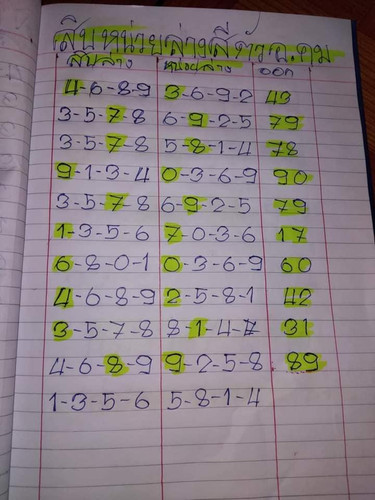 สิบหน่วยล่างสี่ตัว อ.ตุม
สิบล่าง หน่วยล่าง ออก
4-6-8-9 3-6-9-2 43
3-5-7-8 6-9-2-5 79
3-5-7-8 5-8-1-4 78
9-1-3-4 0-3-6-9 90
3-5-7-8 6-9-2-5 79
1-3-5-6 7-0-3-6 17
6-8-0-1 0-3-6-9 60
4-6-8-9 2-5-8-1 42
3-5-7-8 8-1-4-7 31
4-6-8-9 9-2-5-8 89
1-3-5-6 5-8-1-4